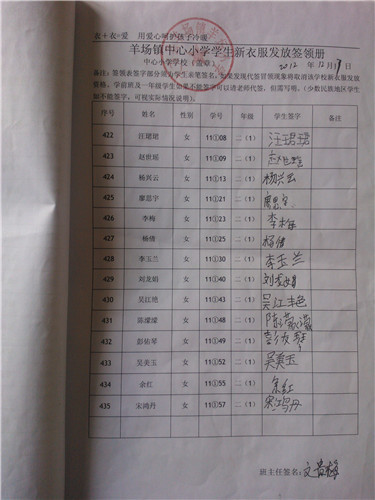 衣+衣=爱 用爱心呵护孩子冷暖
羊场镇中心小学学生新衣服发放签领册
中心小学学校(盖章) 2012年12月19
备注:签领表签字部分须为学生亲笔签名,如果发现代签冒领现象将取消该学校新衣服发放
资格。学前班及一年级学生如果不能签字可以请老师代签,但需写明。(少数民族地区学生
如不能签字,可视实际情况说明)。
序号 姓名 性别 学号 班级 学生签字 备注
422 汪珺珺 女 11①08 二(1) 汪珺珺
423 赵世培 女 11①09 二(1)
424 杨兴云 女 11①13 二(1) 杨兴云
425 廖思宇 女 11①25 二(1) 廖思宇
426 李梅 女 11①23 二(1) 李梅
427 杨倩 女 11①25 二(1) 杨倩
428 李玉兰 女 11①30 二(1) 李玉兰
429 刘龙娟 女 11①40 二(1) 刘龙娟
430 吴江艳 女 11①43 二(1) 吴江艳
431 陈濛濛 女 11①48 二(1) 陈濛濛
432 彭佑琴 女 11①49 二(1) 彭佑琴
433 吴美玉 女 11①52 二(1) 吴美玉
434 余红 女 11①55 二(1) 余红
435 宋鸿丹 女 11①57 二(1) 宋鸿丹
班主任签名:文贵梅